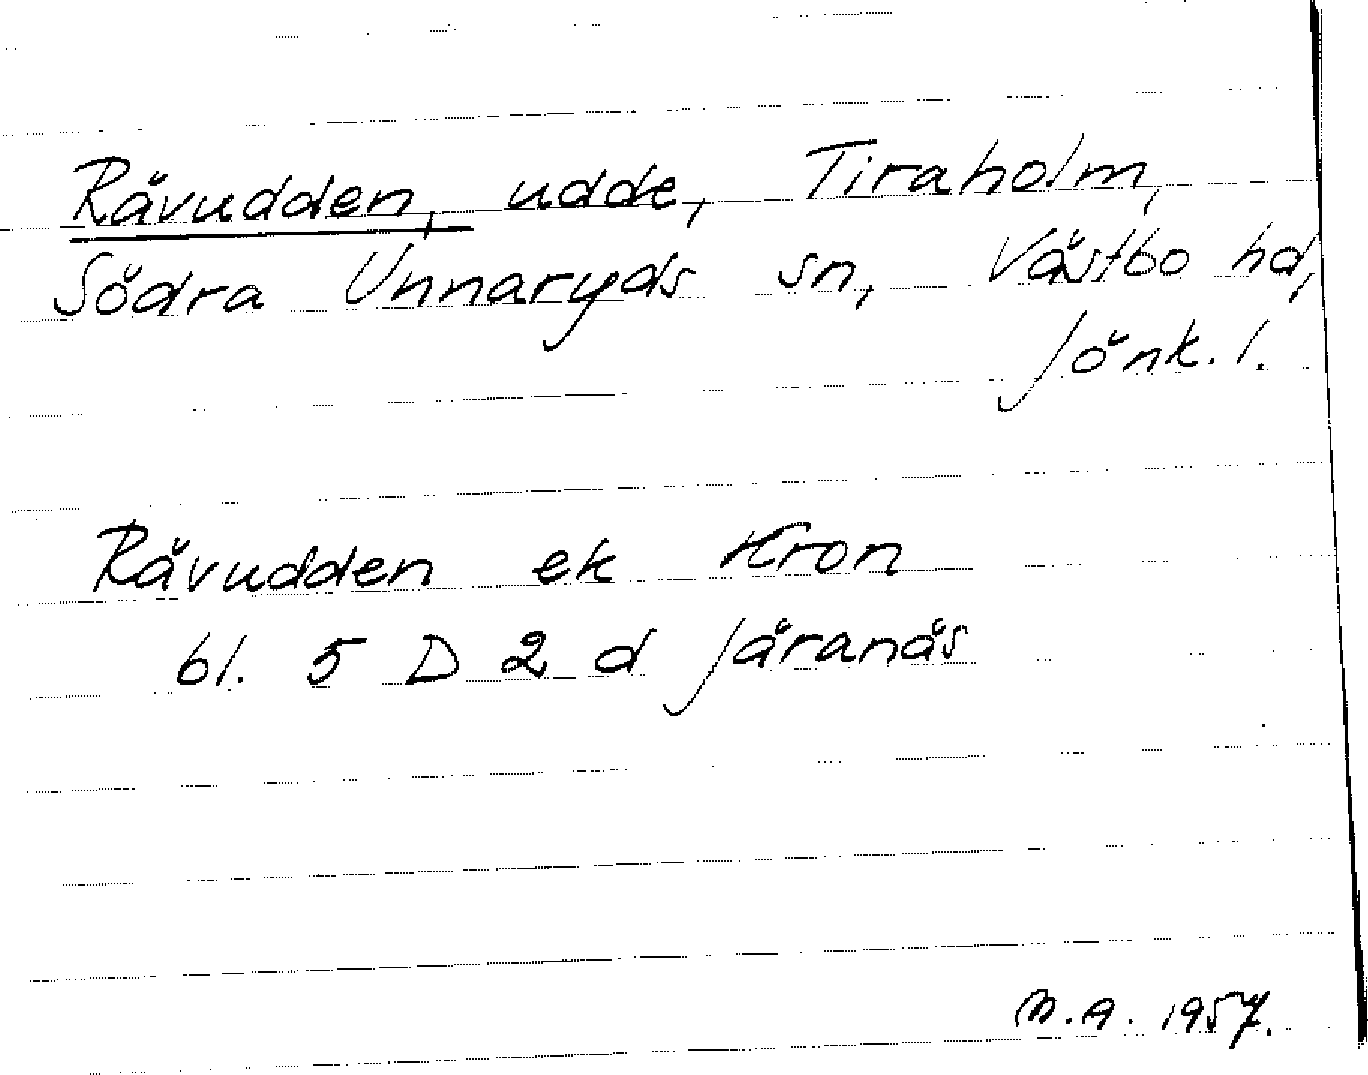 Rävudden, udde, Tiraholm,
Södra Unnaryds sn, Västbo hd,
Jönk. l.
Rävudden ek Kron
bl. 5 D 2 d Järanäs
M.A. 1957.